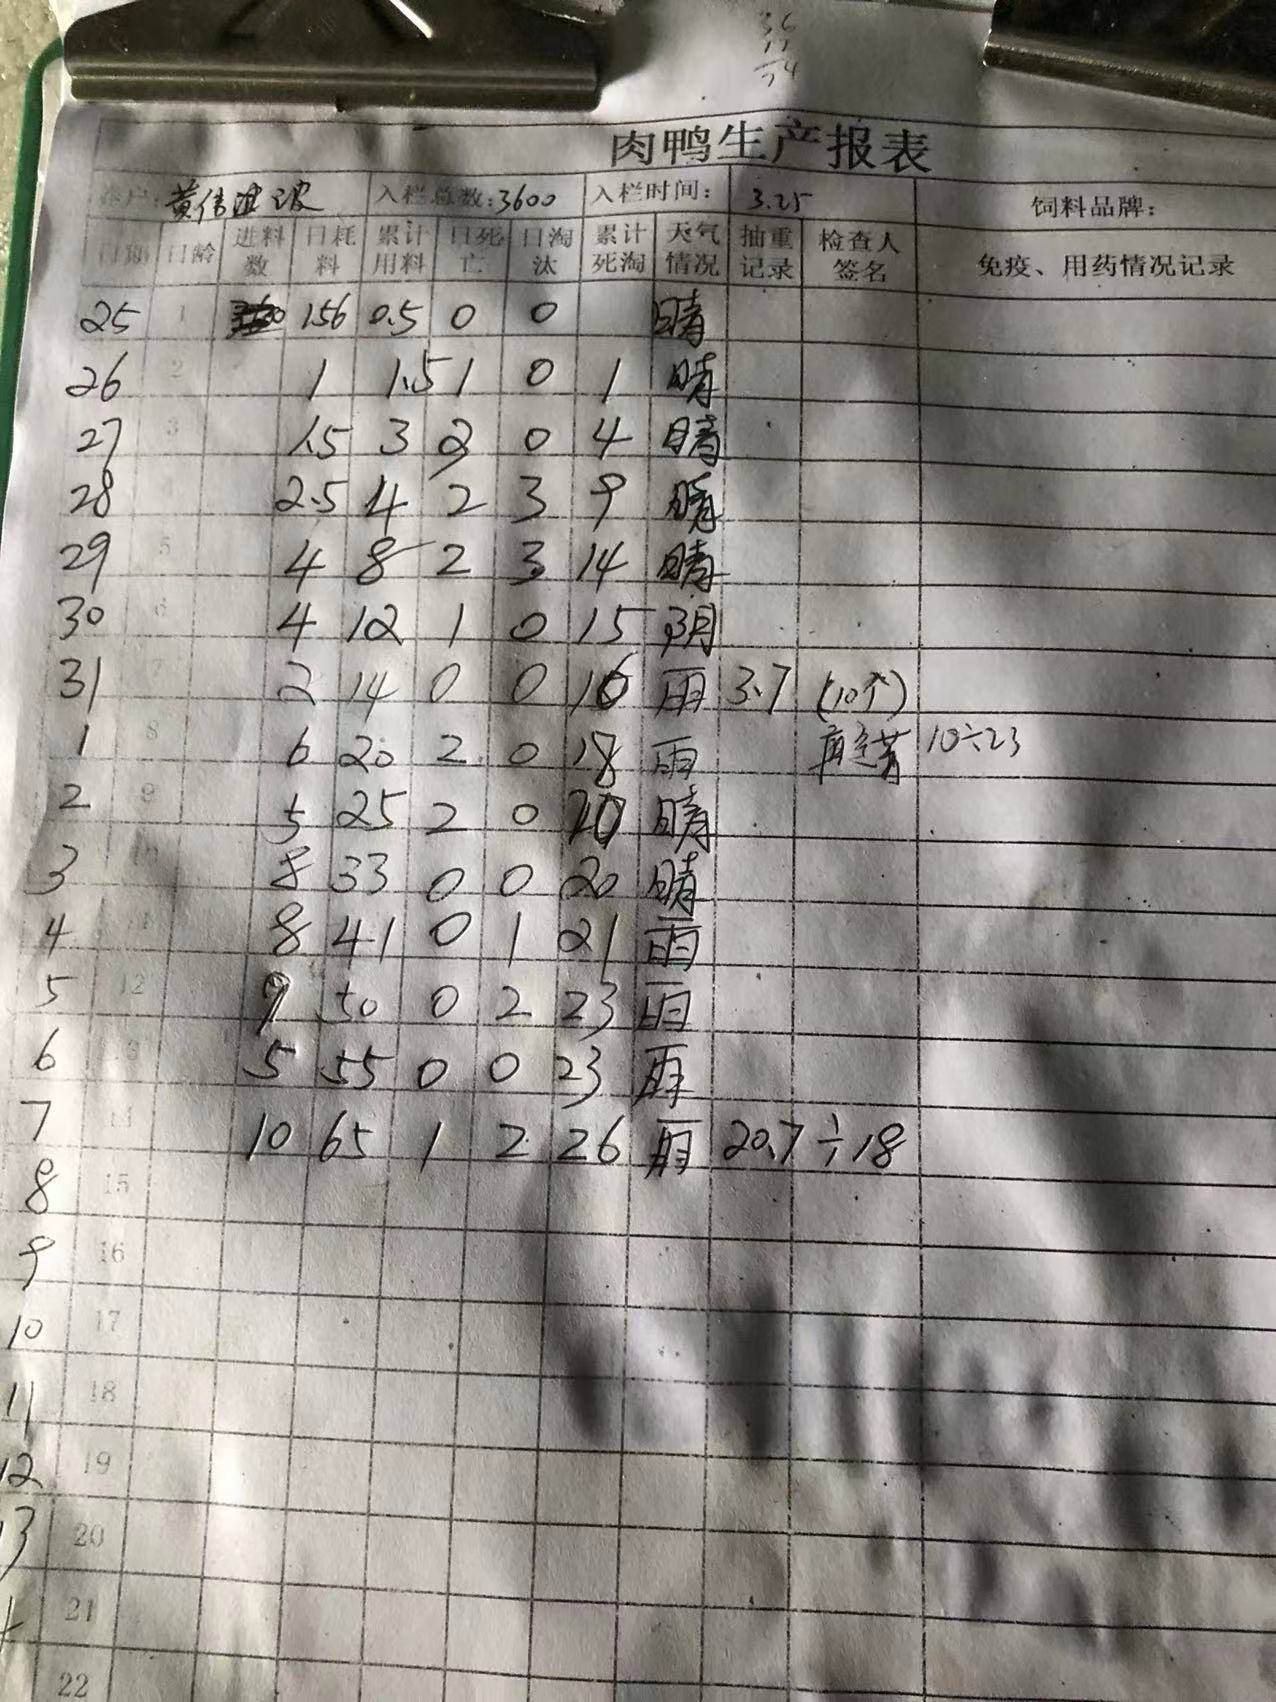 36
肉鸭生产报表
养户: 黄伟 波 入栏总数:3600 入栏时间: 3.25 饲料品牌:
日期 日龄 进料数 日耗料 累计用料 日死亡 日淘汰 累计死淘 天气情况 抽重记录 检查人签名 免疫、用药情况记录
25 1 156 0.5 0 0 晴
26 2 1 1.5 1 0 1 晴
27 3 1.5 3 2 0 4 晴
28 2.5 4 2 3 9 晴
29 5 4 8 2 3 14 晴
30 6 4 12 1 0 15 阴
31 7 2 14 0 0 16 雨 3.7 (10个)
1 8 6 20 2 0 18 雨 10÷23
2 9 5 25 2 0 20 晴
3 10 8 33 0 0 20 晴
4 11 8 41 0 1 21 雨
5 12 9 50 0 2 23 雨
6 13 5 55 0 0 23 雨
7 14 10 65 1 2 26 雨 20.7÷18
8 15
9 16
10 17
11 18
12 19
13 20
21
22